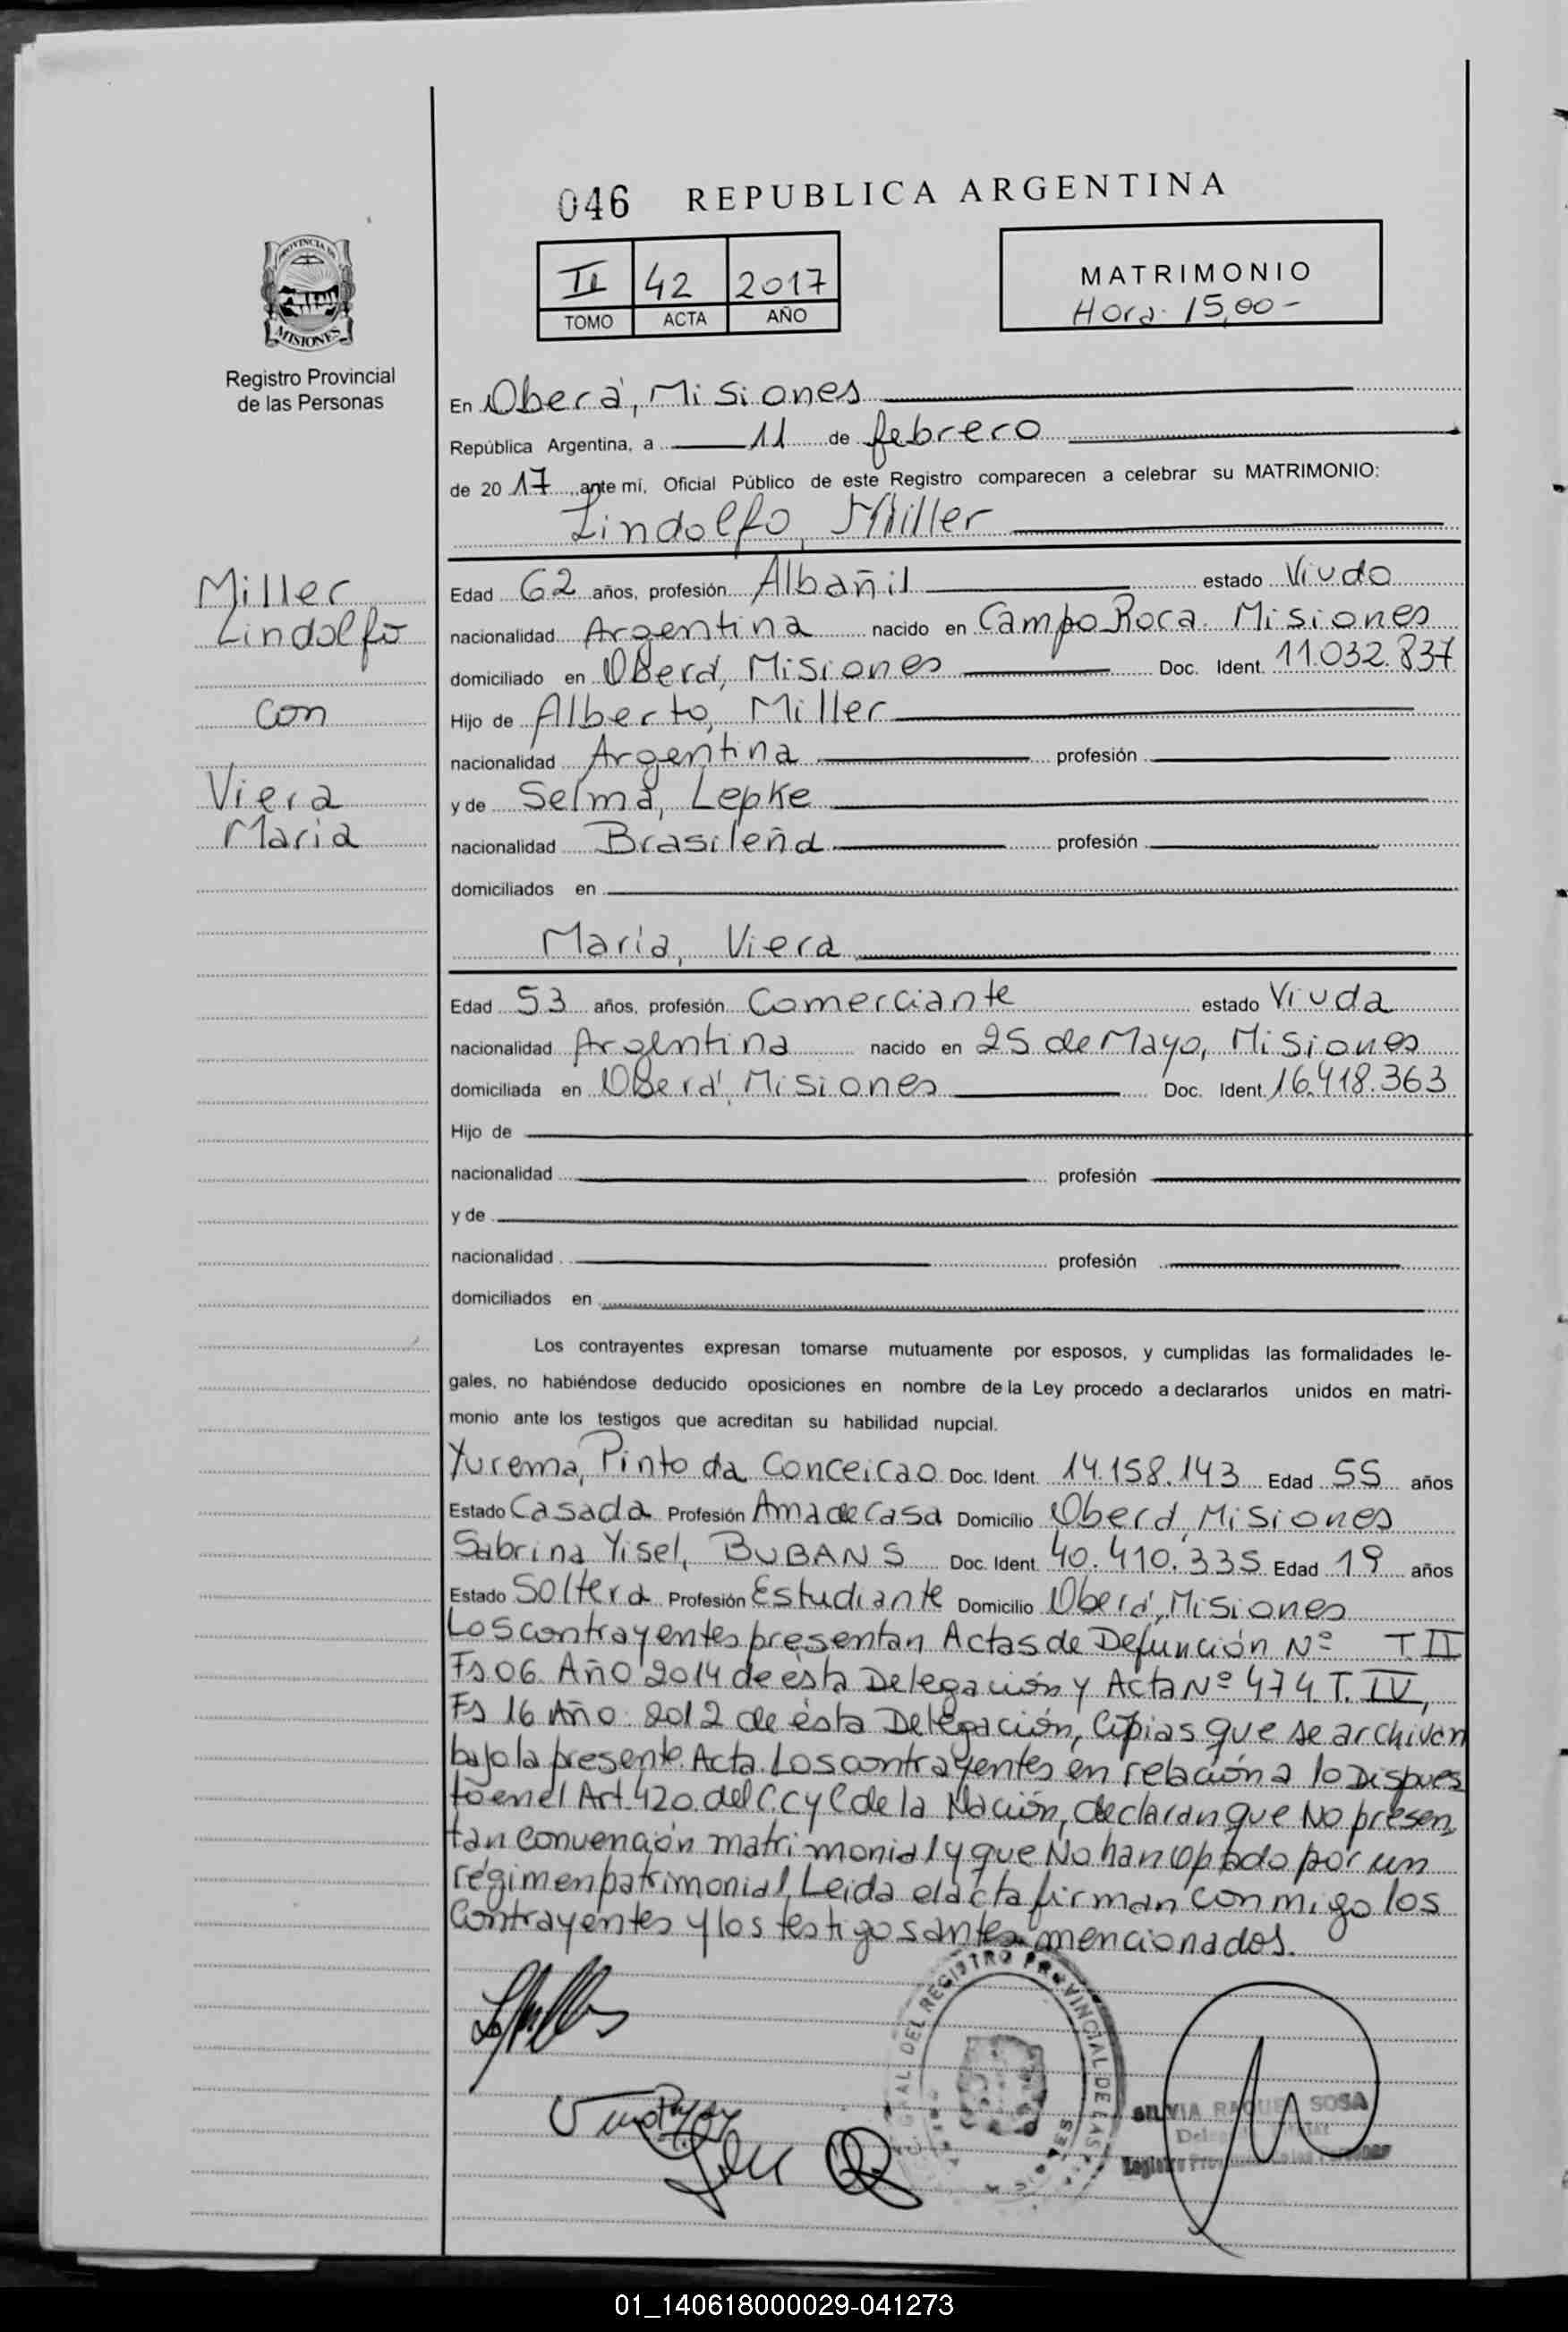 046 REPUBLICA ARGENTINA
II 42 2017
TOMO ACTA AÑO
MATRIMONIO
Hora 15,00-
PROVINCIA DE
MISIONES
Registro Provincial
de las Personas
En Oberá, Misiones
República Argentina, a 11 de febrero
de 2017 ante mí, Oficial Público de este Registro comparecen a celebrar su MATRIMONIO:
Lindolfo, Miller
Miller
Lindolfo
con
Viera
Maria
Edad 62 años, profesión Albañil estado Viudo
nacionalidad Argentina nacido en Campo Roca. Misiones
domiciliado en Oberá, Misiones Doc. Ident. 11.032.837
Hijo de Alberto, Miller
nacionalidad Argentina profesión
y de Selma, Lepke
nacionalidad Brasileña profesión
domiciliados en
Maria, Viera
Edad 53 años, profesión Comerciante estado Viuda
nacionalidad Argentina nacido en 25 de Mayo, Misiones
domiciliada en Oberá, Misiones Doc. Ident. 16.418.363
Hijo de
nacionalidad profesión
y de
nacionalidad profesión
domiciliados en
Los contrayentes expresan tomarse mutuamente por esposos, y cumplidas las formalidades le-
gales, no habiéndose deducido oposiciones en nombre de la Ley procedo a declararlos unidos en matri-
monio ante los testigos que acreditan su habilidad nupcial.
Yurema, Pinto da Conceicao Doc. Ident. 14.158.143 Edad 55 años
Estado Casada Profesión Ama de Casa Domicilio Oberá, Misiones
Sabrina Yisel, BUBANS Doc. Ident. 40.410.335 Edad 19 años
Estado Soltera Profesión Estudiante Domicilio Oberá, Misiones
Los contrayentes presentan Actas de Defunción Nº T.II
Fs 06 Año 2014 de ésta Delegación y Acta Nº 474 T. IV,
Fs 16 Año 2012 de ésta Delegación, Cópias que se archivan
bajo la presente Acta. Los contrayentes en relación a lo Dispues
to en el Art. 420 del C C y C de la Nación, declaran que No presen
tan convención matrimonial y que No han optado por un
régimen patrimonial. Leida el acta firman conmigo los
Contrayentes y los testigos antes mencionados.
DEL REGISTRO PROVINCIAL DE LAS
SILVIA RAQUEL SOSA
01_140618000029-041273